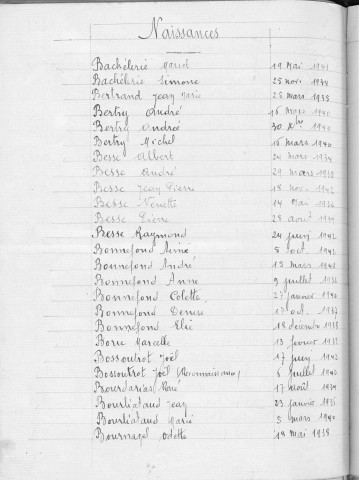 Naissances
Bachélerie Maud 19 Mai 1941
Bachélerie Simone 25 nov. 1934
Bertrand Jean Marie 28 mars 1938
Bertry André 16 mars 1940
Bertry Andrée 30 Xbre 1940
Bertry Michel 16 mars 1940
Besse Albert 24 mars 1934
Besse André 29 mars 1938
Besse Jean Pierre 18 nov. 1942
Besse Ninette 14 Mai 1936
Besse Pierre 28 août
Besse Raymond 24 juin 1942
Bonnefond Aimé 5 oct. 1942
Bonnefond André 15 mars 1941
Bonnefond Anne 9 juillet 1936
Bonnefond Colette 27 janvier 1940
Bonnefond Denise 17 oct. 1937
Bonnefond Elie 18 décembre 1938
Borie Marcelle 13 février 1932
Bossoutrot Joël 17 juin 1942
Bossoutrot Joël (Reconnaissance) 6 juillet 1942
Bourdarias René 17 août 1934
Bourliataud Jean 23 janvier 1935
Bourliataud Marie 5 mars 1940
Bournazel Odette 18 mai 1938